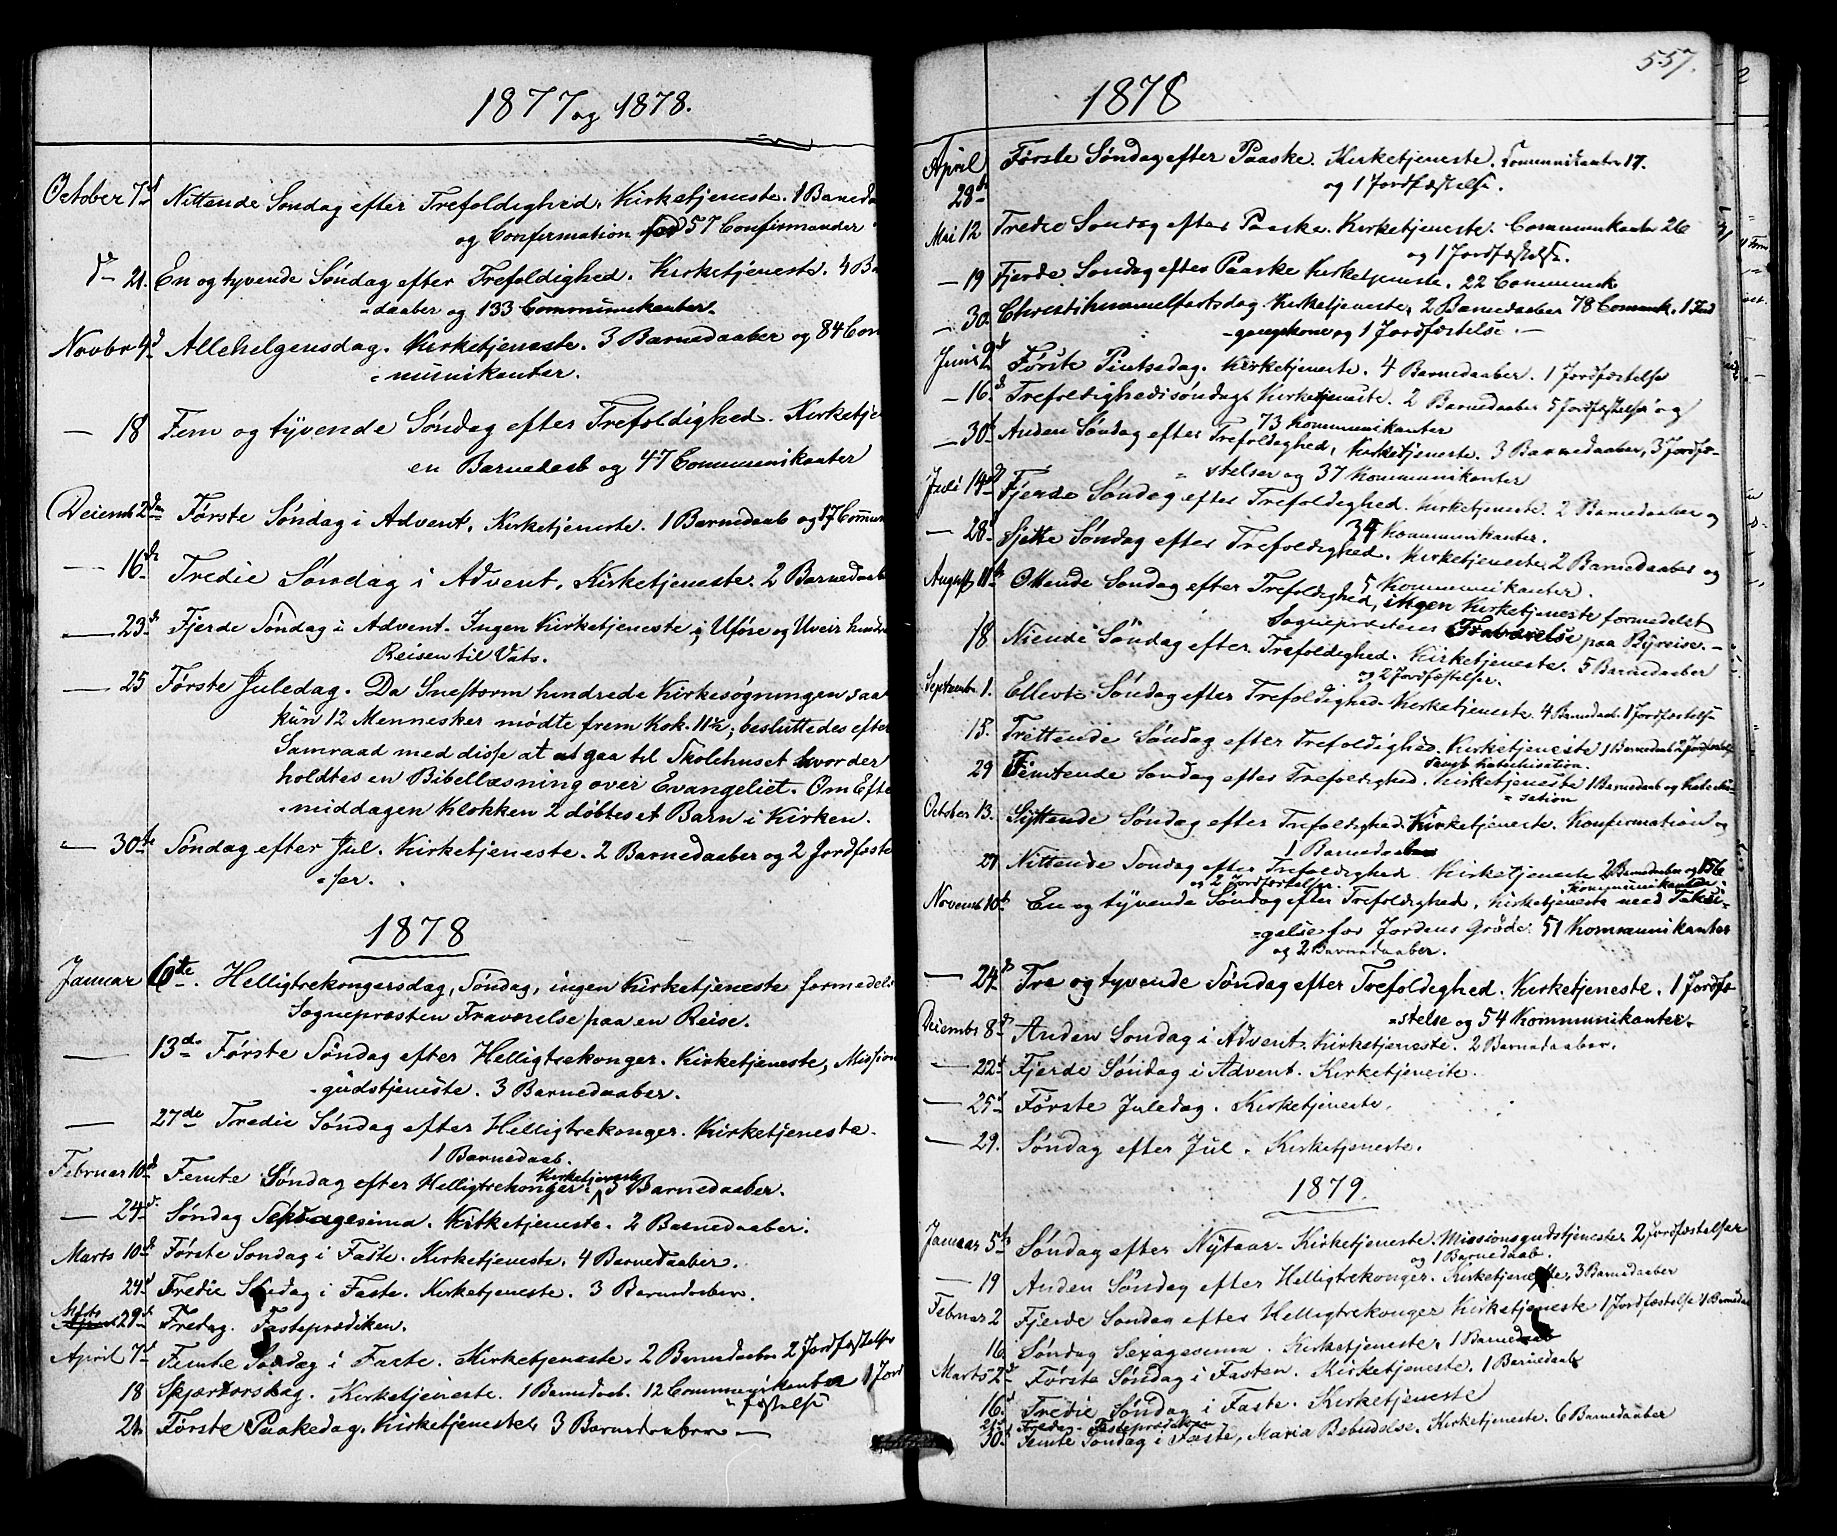 1877 og 1878.
October 7d Nittende Søndag efter Trefoldighed. Kirketjeneste. 1 Barneda
og Confirmation 57 Confirmander
d— 21. En og tyvende Søndag efter Trefoldighed. Kirketjeneste. 4 Ba
=daaber og 133 Communikanter.
Novbr 4d Allehelgensdag. Kirketjeneste. 3 Barnedaaber og 84 Com
=munikanter.
— 18 Fem og tyvende Søndag efter Trefoldighed. Kirketje
en Barnedaab og 47 Communikanter
Decemb 2den Første Søndag i Advent. Kirketjeneste. 1 Barnedaab og 17 Commun
— 16de Tredie Søndag i Advent. Kirketjeneste. 2 Barnedaabe
— 23d Fjerde Søndag i Advent. Ingen Kirketjeneste; Uføre og Uveir hindre
Reisen til Vats.
— 25 Første Juledag. Da Snestorm hindrede Kirkesøgningen saa
kün 12 Mennesker mødte frem Kok. 11½; besluttedes efter
Samraad med disse at gaa til Skolehuset hvor der
holdtes en Bibellæsning over Evangeliet. Om Efte
=middagen Klokken 2 døbtes et Barn i Kirken.
— 30te Søndag efter Jul. Kirketjeneste. 2 Barnedaaber og 2 Jordfæste
=ser.
1878
Januar 6te. Helligtrekongersdag, Søndag, ingen Kirketjeneste formedels
Sognepræsten Fraværelse paa en Reise.
— 13de Første Søndag efter Helligtrekonger. Kirketjeneste, Mission
=gudstjeneste. 3 Barnedaaber.
— 27de Tredie Søndag efter Helligtrekonger. Kirketjeneste.
1 Barnedaab.
Februar 10d Femte Søndag efter Helligtrekonger. Kirketjeneste 3 Barnedaaber.
— 24d. Søndag Septuagesima. Kirketjeneste. 2 Barnedaaber.
Marts 10d Første Søndag i Faste. Kirketjeneste. 4 Barnedaaber.
24d Tredie Søndag i Faste. Kirketjeneste. 3 Barnedaaber.
Marts 29d Fredag. Fasteprædiken.
April 7d Femte Søndag i Faste. Kirketjeneste. 2 Barnedaaber 2 Jordfæstelser
18 Skjærtorsdag. Kirketjeneste. 1 Barnedaab. 12 Communikanter 1 Jord
=fæstelse
21. Første Paaskedag. Kirketjeneste. 3 Barnedaaber —
557.
1878
April 28d Første Søndag efter Paaske. Kirketjeneste. Communikanter 17.
og 1 Jordfæstelse.
Mai 12 Tredie Søndag efter Paaske. Kirketjeneste. Communikanter 26
og 1 Jordfæstelse.
— 19 Fjerde Søndag efter Paaske Kirketjeneste. 22 Communik
— 30 Christi himmelfartsdag. Kirketjeneste, 2 Barnedaaber 78 Communk. 1 Ind
=gangskone og 1 Jordfæstelse. —
Juni 9d Første Pintsedag. Kirketjeneste. 4 Barnedaaber. 1 Jordfæstelse
— 16d Trefoldighedssøndag. Kirketjeneste. 2 Barnedaaber 5 Jordfæstelse og
73 Kommunikanter
— 30d Anden Søndag efter Trefoldighed, Kirketjeneste. 3 Barnedaaber, 3 Jordfæ-
=stelser og 37 Kommunikanter
Juli 14d Fjerde Søndag efter Trefoldighed. Kirketjeneste. 2 Barnedaaber og
34 Kommunikanter.
— 28d Sjette Søndag efter Trefoldighed. Kirketjeneste 2 Barnedaaber og
5 Kommunikanter.
August 11te Ottende Søndag efter Trefoldighed, ingen Kirketjeneste formedelst
Sognepræstens Fraværelse paa Byreise. —
18 Niende Søndag efter Trefoldighed. Kirketjeneste. 5 Barnedaaber
og 2 Jordfæstelser.
Septembr 1. Ellevte Søndag efter Trefoldighed. Kirketjeneste. 4 Barnedaab. 1 Jordfæstelse
15. Trettende Søndag efter Trefoldighed. Kirketjeneste 1 Barnedaab 2 Jordfæstelse
samt Katechisation.
29 Femtende Søndag efter Trefoldighed. Kirketjeneste 1 Barnedaab og Katechi-
=sation
October 13. Syttende Søndag efter Trefoldighed. Kirketjeneste. Konfirmation og
1 Barnedaab
27 Nittende Søndag efter Trefoldighed. Kirketjeneste 2 Barnedaaber og 156
Kommunikanter
og 2 Jordfæstelser.
Novemb 10d En og tyvende Søndag efter Trefoldighed. Kirketjeneste med Taksi-
=gelse for Jordens Grøde. 51 Kommunikanter
og 2 Barnedaaber.
— 24d Tre og tyvende Søndag efter Trefoldighed. Kirketjeneste. 1 Jordfæ-
=stelse og 54 Kommunikanter.
Decembr 8d Anden Søndag i Advent. Kirketjeneste. 2 Barnedaaber.
— 22d Fjerde Søndag i Advent. Kirketjeneste.
— 25d Første Juledag. Kirketjeneste.
— 29. Søndag efter Jul. Kirketjeneste.
1879.
Januar 5te Søndag efter Nytaar. Kirketjeneste. Missionsgudstjeneste 2 Jordfæstelser
og 1 Barnedaab.
— 19 Anden Søndag efter Helligtrekonger. Kirketjeneste, 3 Barnedaaber
Februar 2 Fjerde Søndag efter Helligtrekonger Kirketjeneste 1 Jordfæstelse 1 Barnedaa
16 Søndag Sexagesima. Kirketjeneste. 1 Barnedaab
Marts 2d Første Søndag i Fasten. Kirketjeneste. 1 Barnedaab
16d Tredie Søndag i Faste. Kirketjeneste
21d Fredag - Fasteprædiken
30d Femte Søndag i Faste, Maria Bebudelse. Kirketjeneste. 6 Barnedaaber